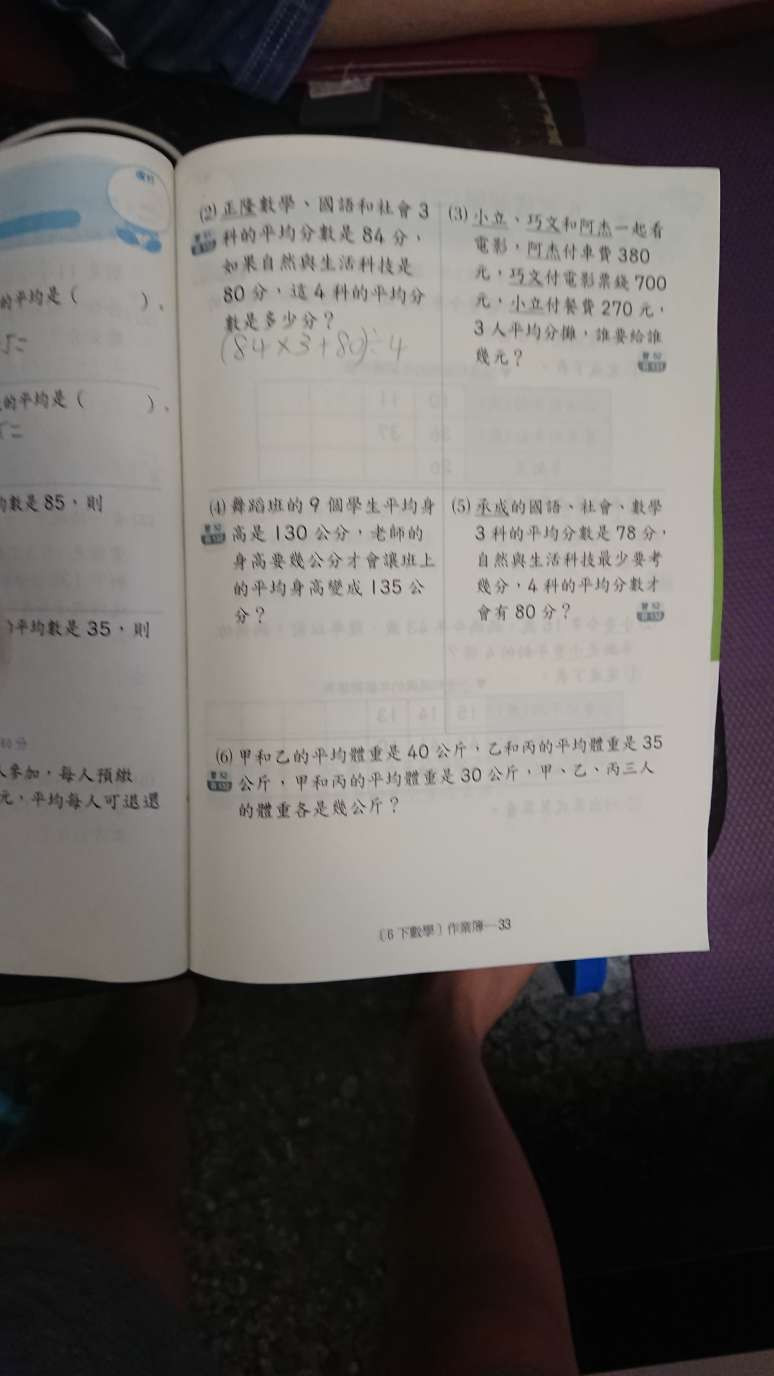 的平均是（　　）、
的平均是（　　）、
數是 85，則
平均數是 35，則
人參加，每人預繳
元，平均每人可退還
(2) 正隆數學、國語和社會 3
科的平均分數是 84 分，
如果自然與生活科技是
80 分，這 4 科的平均分
數是多少分？
(84×3+80)÷4
(3) 小立、巧文和阿杰一起看
電影，阿杰付車費 380
元，巧文付電影票錢 700
元，小立付餐費 270 元，
3 人平均分攤，誰要給誰
幾元？
(4) 舞蹈班的 9 個學生平均身
高是 130 公分，老師的
身高要幾公分才會讓班上
的平均身高變成 135 公
分？
(5) 承成的國語、社會、數學
3 科的平均分數是 78 分，
自然與生活科技最少要考
幾分，4 科的平均分數才
會有 80 分？
(6) 甲和乙的平均體重是 40 公斤，乙和丙的平均體重是 35
公斤，甲和丙的平均體重是 30 公斤，甲、乙、丙三人
的體重各是幾公斤？
〔6 下數學〕作業簿—33